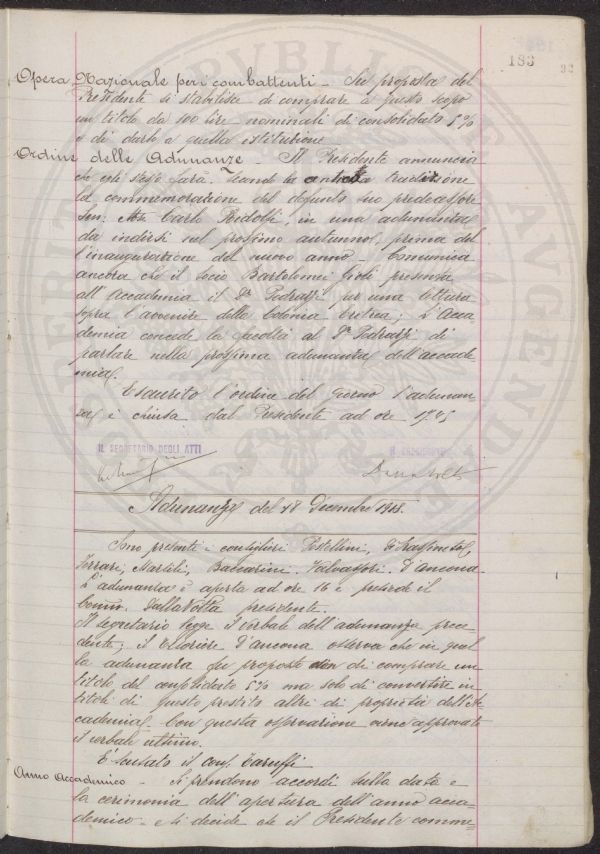 183
Opera Nazionale per i combattenti - Su proposta del
Presidente si stabilisce di comprare a questo scopo
un titolo da 100 lire nominali di consolidato 5%
e di darlo a quella istituzione
Ordine delle Adunanze - Il Presidente annuncia
che egli stesso farà, secondo la tradizione
la commemorazione del defunto suo predecessore
Sen. Carlo Ridolfi, in una adunanza
da indirsi nel prossimo autunno, prima del
l'inaugurazione del nuovo anno - Comunica
ancora che il socio Bartolomei Gioli presenta
all'Accademia il Dr Pedrazzi per una lettura
sopra l'avvenire della Colonia Eritrea; L'Acca
demia concede la facoltà al Dr Pedrazzi di
parlare nella prossima adunanza dell'accade-
mia.
Esaurito l'ordine del giorno l'adunan
za è chiusa dal Presidente ad ore 17.45
IL SEGRETARIO DEGLI ATTI
IL PRESIDENTE
Adunanza del 18 Dicembre
Sono presenti i consiglieri Pestellini, Passerini,
Ferrari, Martelli, Baccarini, Valvassori, D'ancona
L'adunanza è aperta ad ore 16 e presiede il
Comm. Dalla Volta presidente.
Il segretario legge il verbale dell'adunanza prece
dente; il tesoriere D'ancona osserva che in quel
la adunanza fu proposto non di comprare un
titolo del consolidato 5% ma solo di convertire in
titoli di questo prestito altri di proprietà dell'Ac
cademia. Con questa osservazione viene approvato
il verbale ultimo.
È scusato il cons. Taruffi
Anno Accademico - Si prendono accordi sulla data e
la cerimonia dell'apertura dell'anno acca
demico - si decide che il Presidente comme